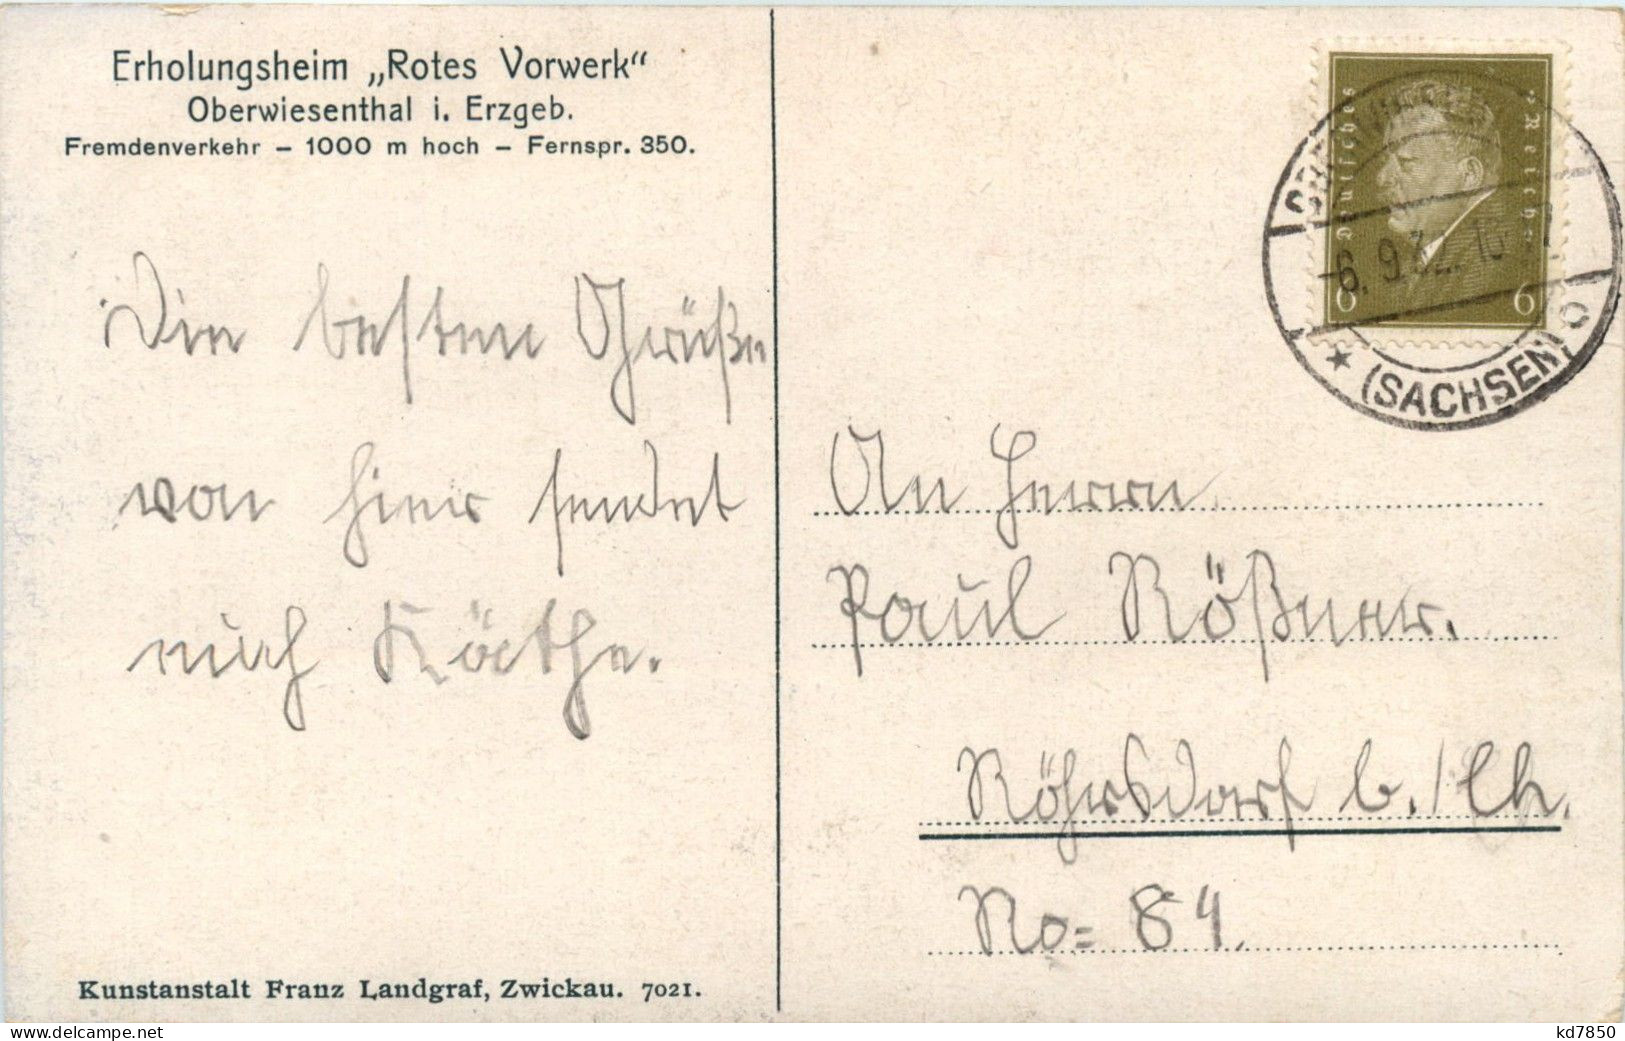 Erholungsheim „Rotes Vorwerk“
Oberwiesenthal i. Erzgeb.
Fremdenverkehr – 1000 m hoch – Fernspr. 350.
Die besten Grüße
von hier sendet
euch Käthe.
Kunstanstalt Franz Landgraf, Zwickau. 7021.
Deutsches Reich
6 6
-6. 9.32. 16-
(SACHSEN)
An Herrn
Paul Rößner.
Röhrsdorf b./Ch.
No= 84.
kd7850